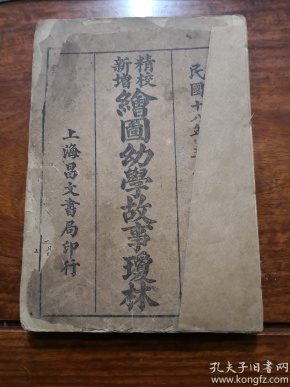 民國十八年
精校
新增
繪圖幼學故事瓊林
上海昌文書局印行
孔夫子旧书网
kongfz.com